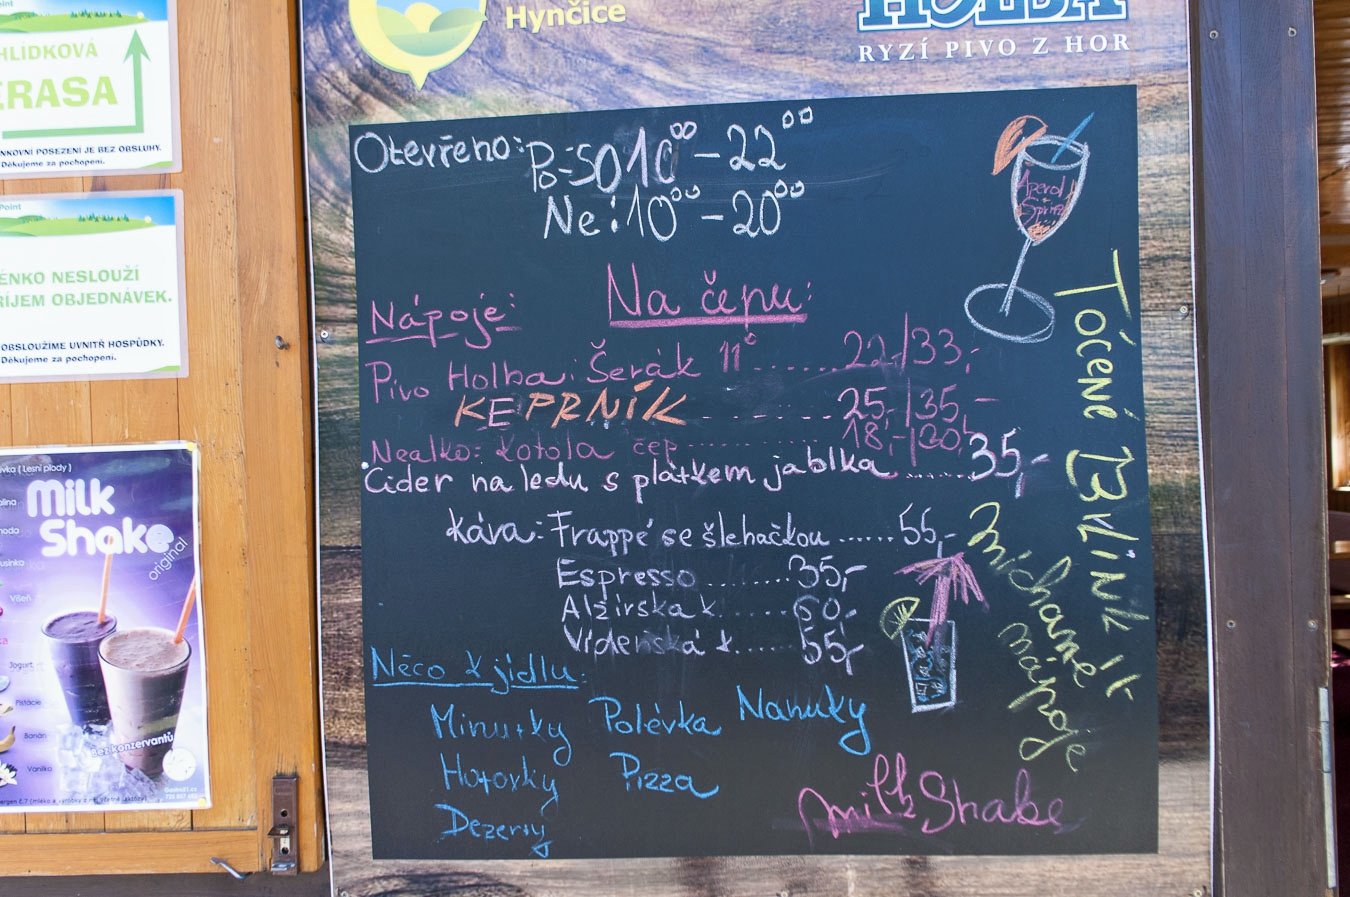 Point
HLÍDKOVÁ
ERASA
NKOVNÍ POSEZENÍ JE BEZ OBSLUHY.
Děkujeme za pochopení.
Point
ÉNKO NESLOUŽÍ
ŘÍJEM OBJEDNÁVEK.
OBSLOUŽÍME UVNITŘ HOSPŮDKY.
Děkujeme za pochopení.
vka ( Lesní plody )
Milk
Shake
original
Višeň
Jogurt
Pistácie
Banán
Vanilka
Bez konzervantů
Hynčice
HOLBA
RYZÍ PIVO Z HOR
Otevřeno: Po-SO 10⁰⁰-22⁰⁰
Ne: 10⁰⁰-20⁰⁰
Aperol
Spritz
Na čepu:
Nápoje:
Pivo Holba: Šerák 11°......22,-/33,-
KEPRNÍK ........ 25,-/35,-
Nealko: Kofola čep.......... 18,-/20,-
Cider na ledu s plátkem jablka ......35,-
Káva: Frappé se šlehačkou ...... 55,-
Espresso ........ 35,-
Alžírská k. ...... 60,-
Vídeňská k. ..... 55,-
Něco k jídlu:
Minutky Polévka Nanuky
Hotovky Pizza
Dezerty
Milk Shake
Točené BRLINK
míchané
nápoje